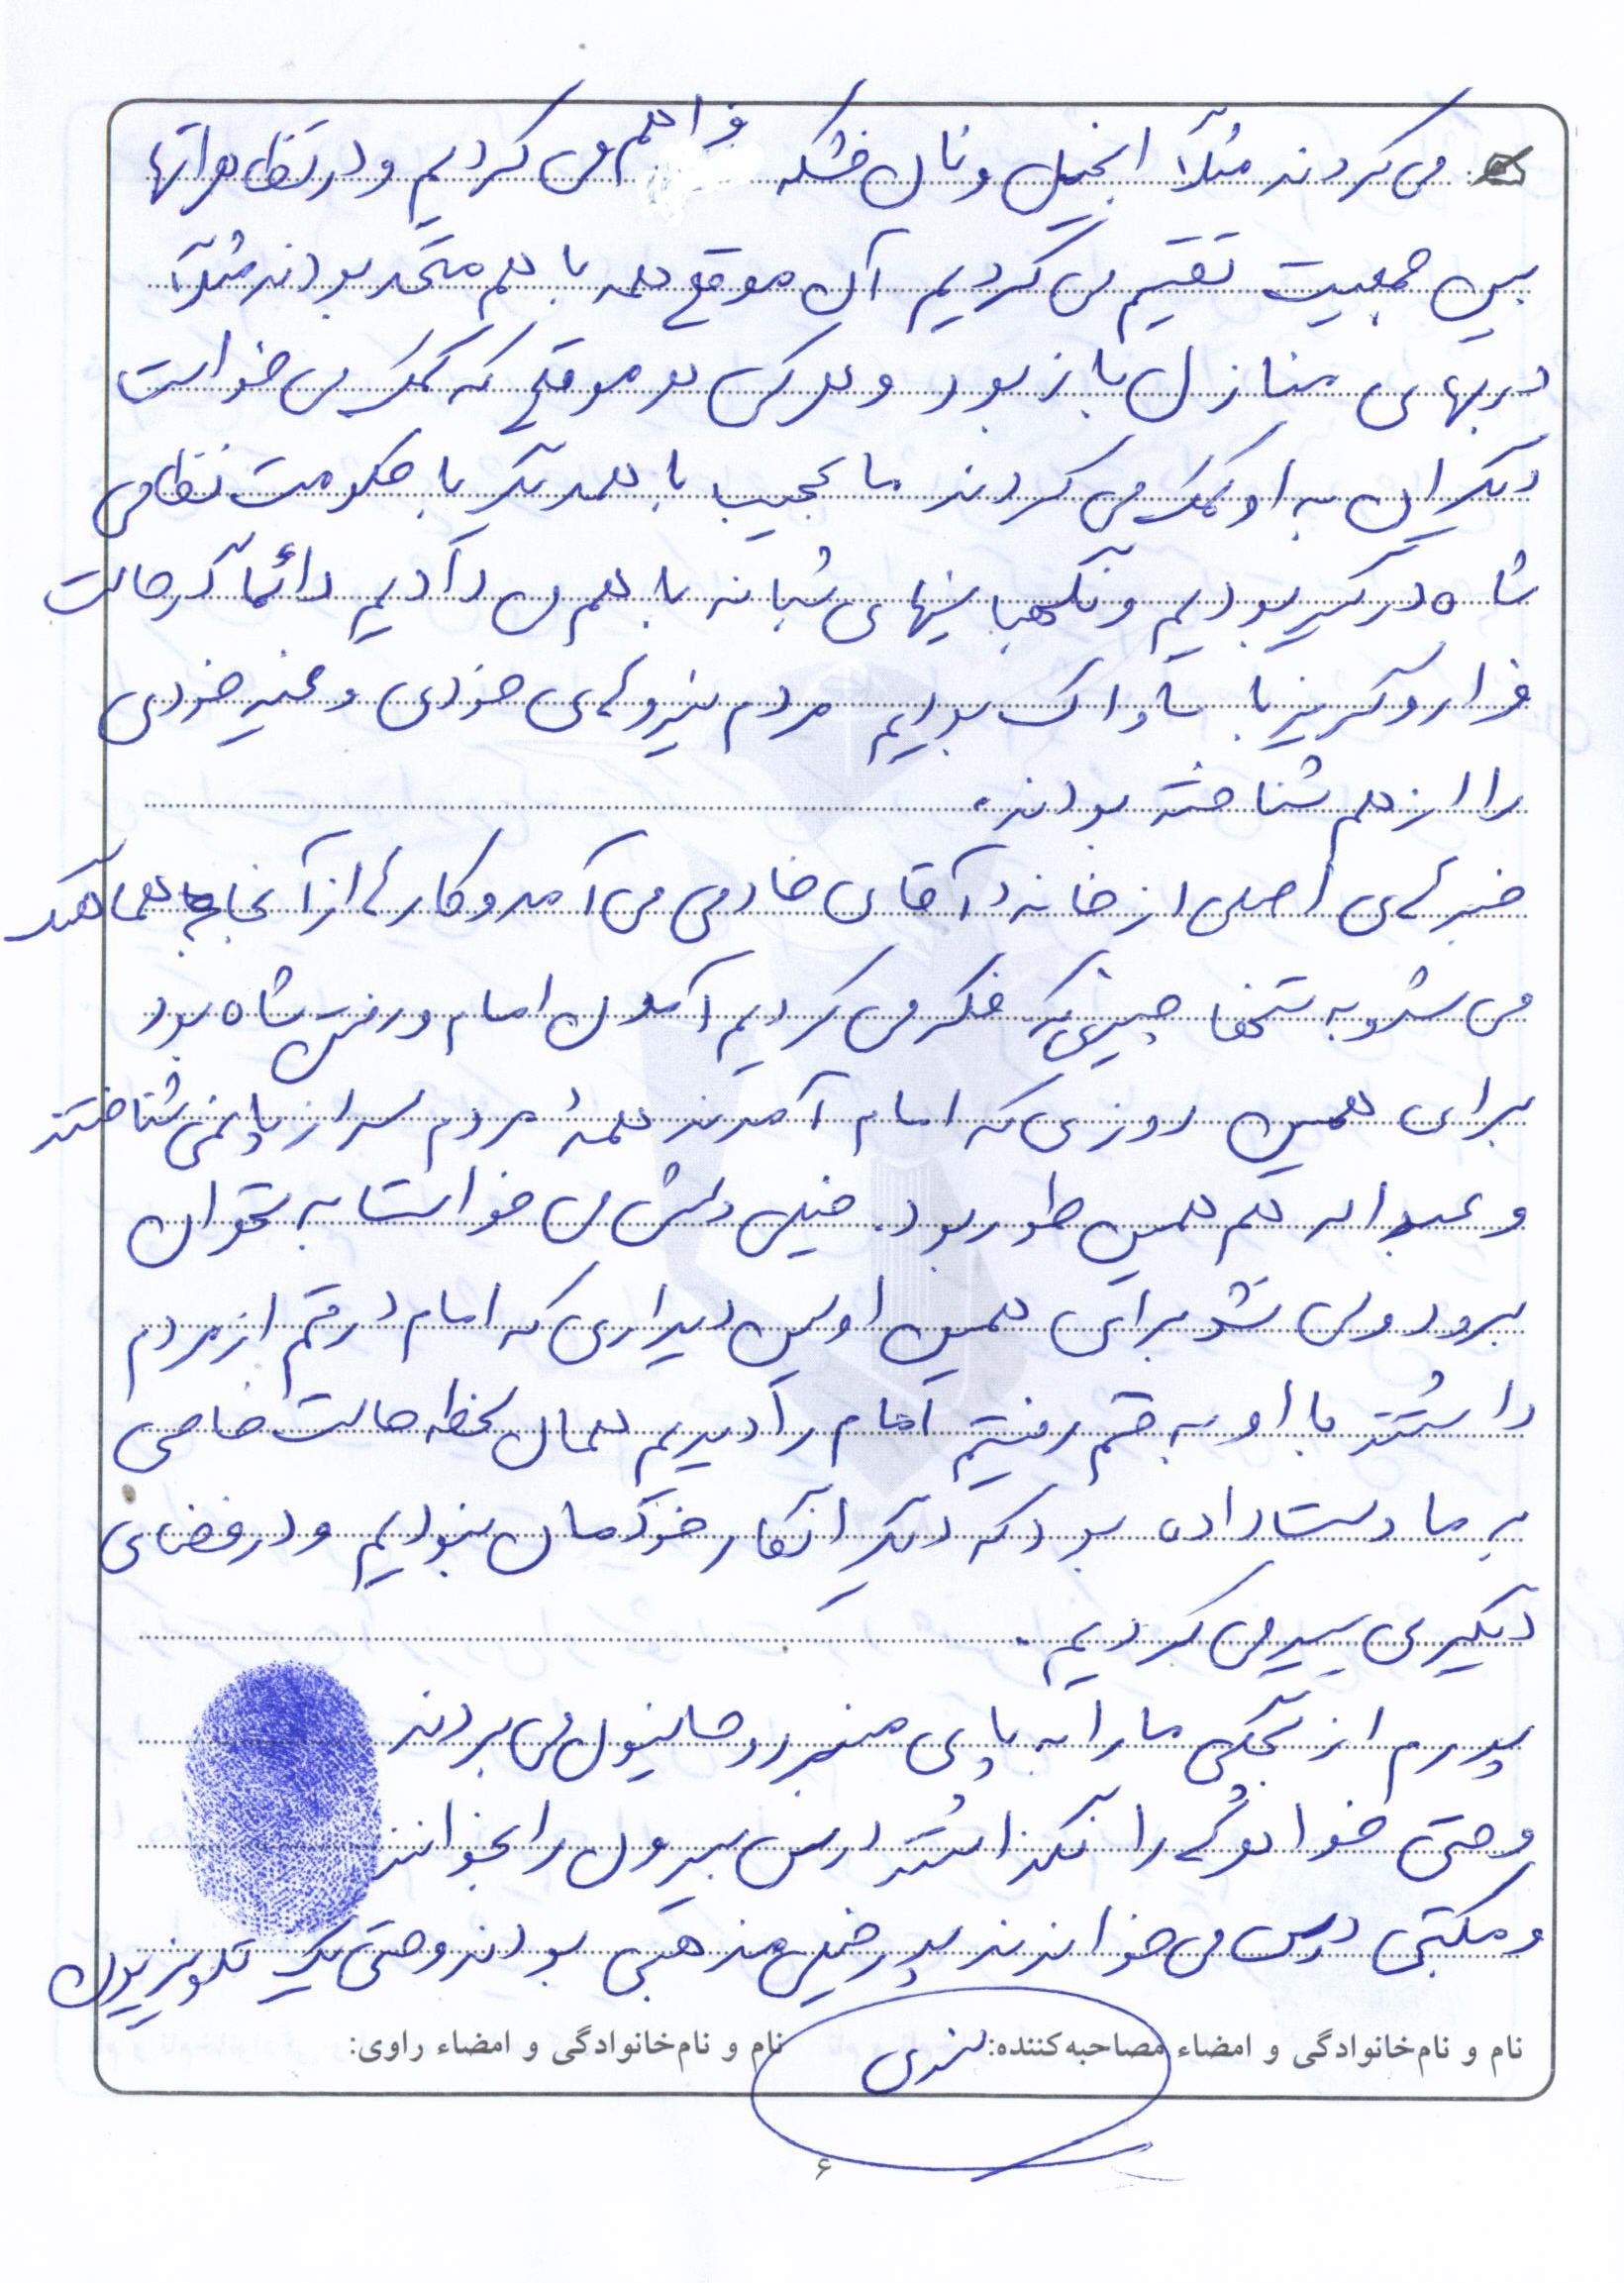 می کردند مثلاً انجیل و نان خشکه فراهم می کردیم و در تظاهراتها
بین جمعیت تقسیم می کردیم آن موقع همه با هم متحد بودند مثلاً
دربهای منازل باز بود و هر کس هر موقع که کمک می خواست
دیگران به او کمک می کردند ما عجیب با همدیگر با حکومت نظامی
شاه درگیر بودیم و نگهبانیهای شبانه با هم می دادیم دائماً در حالت
فرار و گریز با ساواک بودیم مردم نیروهای خودی و غیر خودی
را از هم شناخته بودند.
خبرهای اصلی از خانه آقای خادمی می آمد و کارها از آنجا هماهنگ
می شد و به تنها چیزی که فکر می کردیم آمدن امام و رفتن شاه بود
برای همین روزی که امام آمدند همهٔ مردم سر از پا نمی شناختند
و عبداله هم همین طور بود. خیلی دلش می خواست به تهران
برود ولی نشد برای همین اولین دیداری که امام در قم از مردم
داشتند با او به قم رفتیم امام را دیدیم همان لحظه حالت خاصی
به ما دست داده بود که دیگر انگار خودمان نبودیم و در فضای
دیگری سیر می کردیم.
پدرم از بچگی ما را به پای منبر روحانیون می بردند
و حتی خواهرها را نگذاشتند درس بیرون را بخوانند
و مکتبی درس می خواندند پدر خیلی مذهبی بودند و حتی یک تلویزیون
نام و نام‌خانوادگی و امضاء مصاحبه‌کننده: نام و نام‌خانوادگی و امضاء راوی:
۶